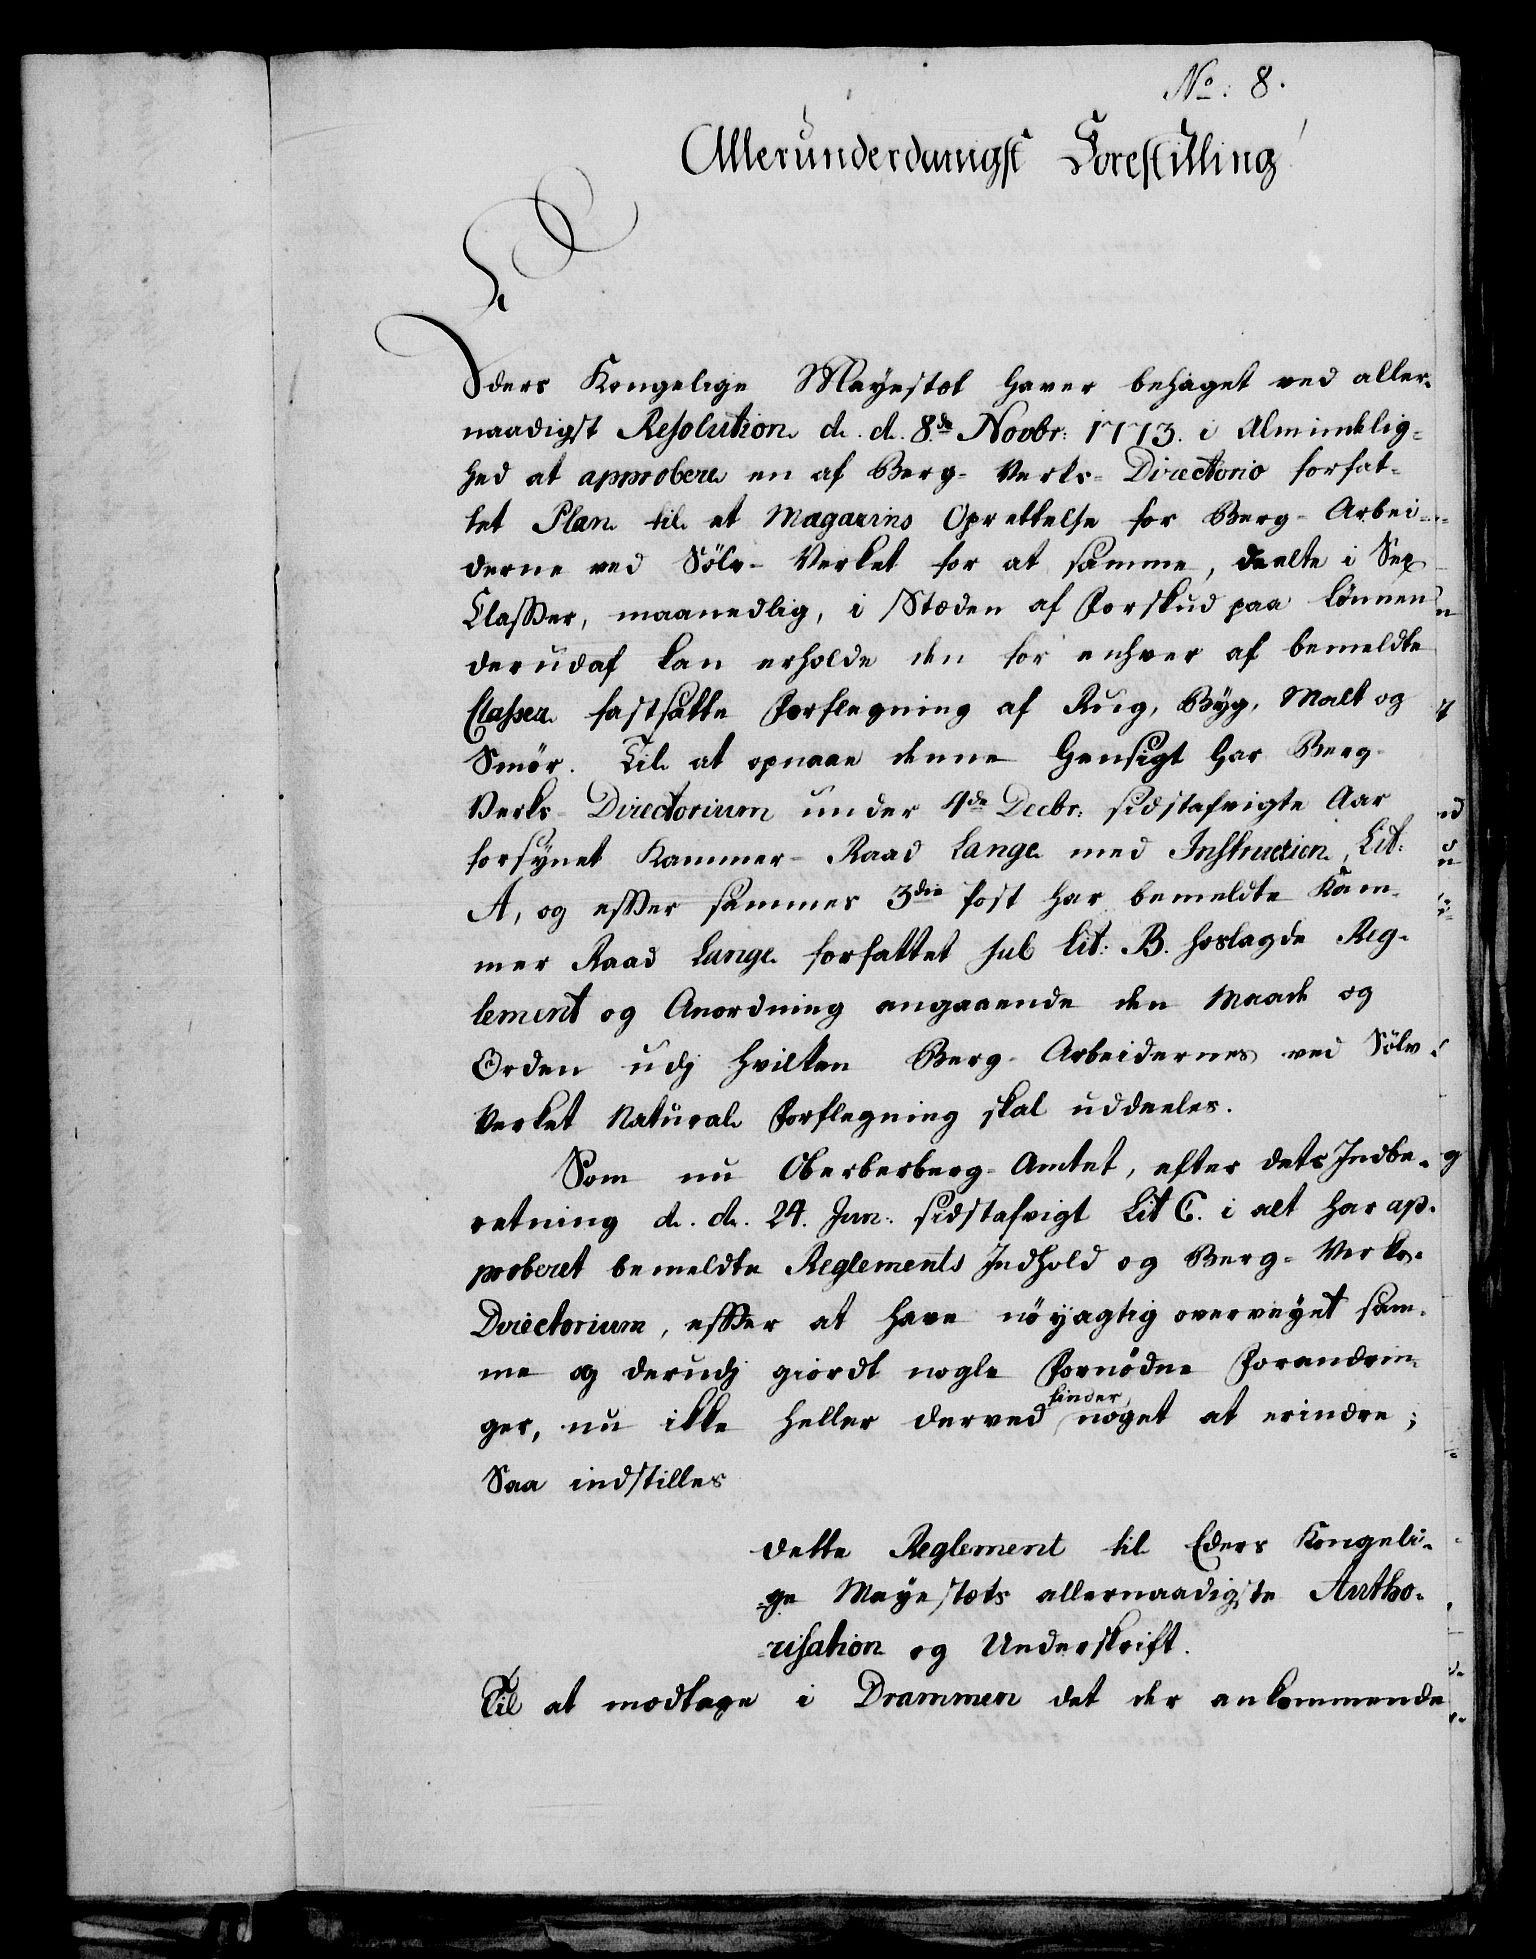 No: 8.
Allerunderdanigst Forestilling
Eders Kongelige Mayestæt haver behaget ved aller-
naadigst Resolution d. d. 8de Novbr: 1773. i Almindelig-
hed at approbere en af Berg-Verks-Directorio forfat-
tet Plan til et Magazins Oprettelse for Berg-Arbei-
derne ved Sölv-Verket for at samme, deelte i Sex
Classer, maanedlig, i Stæden af Forskud paa Lönnen
derudaf kan erholde den for enhver af bemeldte
Classer fastsatte Forflegning af Rug, Byg, Malt og
Smör. Til at opnaae denne Hensigt har Berg-
Verks-Directorium under 4de Decbr: sidstafvigte Aar
forsynet Kammer-Raad Lange med Instruction, Lit:
A, og efter sammes 3die Post har bemeldte Kam-
mer Raad Lange forfattet sub Lit: B. hoslagde Reg-
lement og Anordning angaaende den Maade og
Orden udj hvilken Berg-Arbeidernes ved Sölv-
Verket Natural Forflegning skal uddeeles.
Som nu Oberberg-Amtet, efter dets Indbe-
retning d. d. 24. Jan: sidstafvigt Lit C. i alt har ap-
proberet bemeldte Reglements Indhold og Berg-Verks-
Directorium, efter at have nöyagtig overveyet sam-
me og derudj giordt nogle Fornödne Forandrin-
ger, nu ikke heller derved finder noget at erindre;
Saa indstilles
dette Reglement til Eders Kongeli-
ge Mayestæts allernaadigste Autho-
risation og Underskrift.
Til at modtage i Drammen det der ankommende